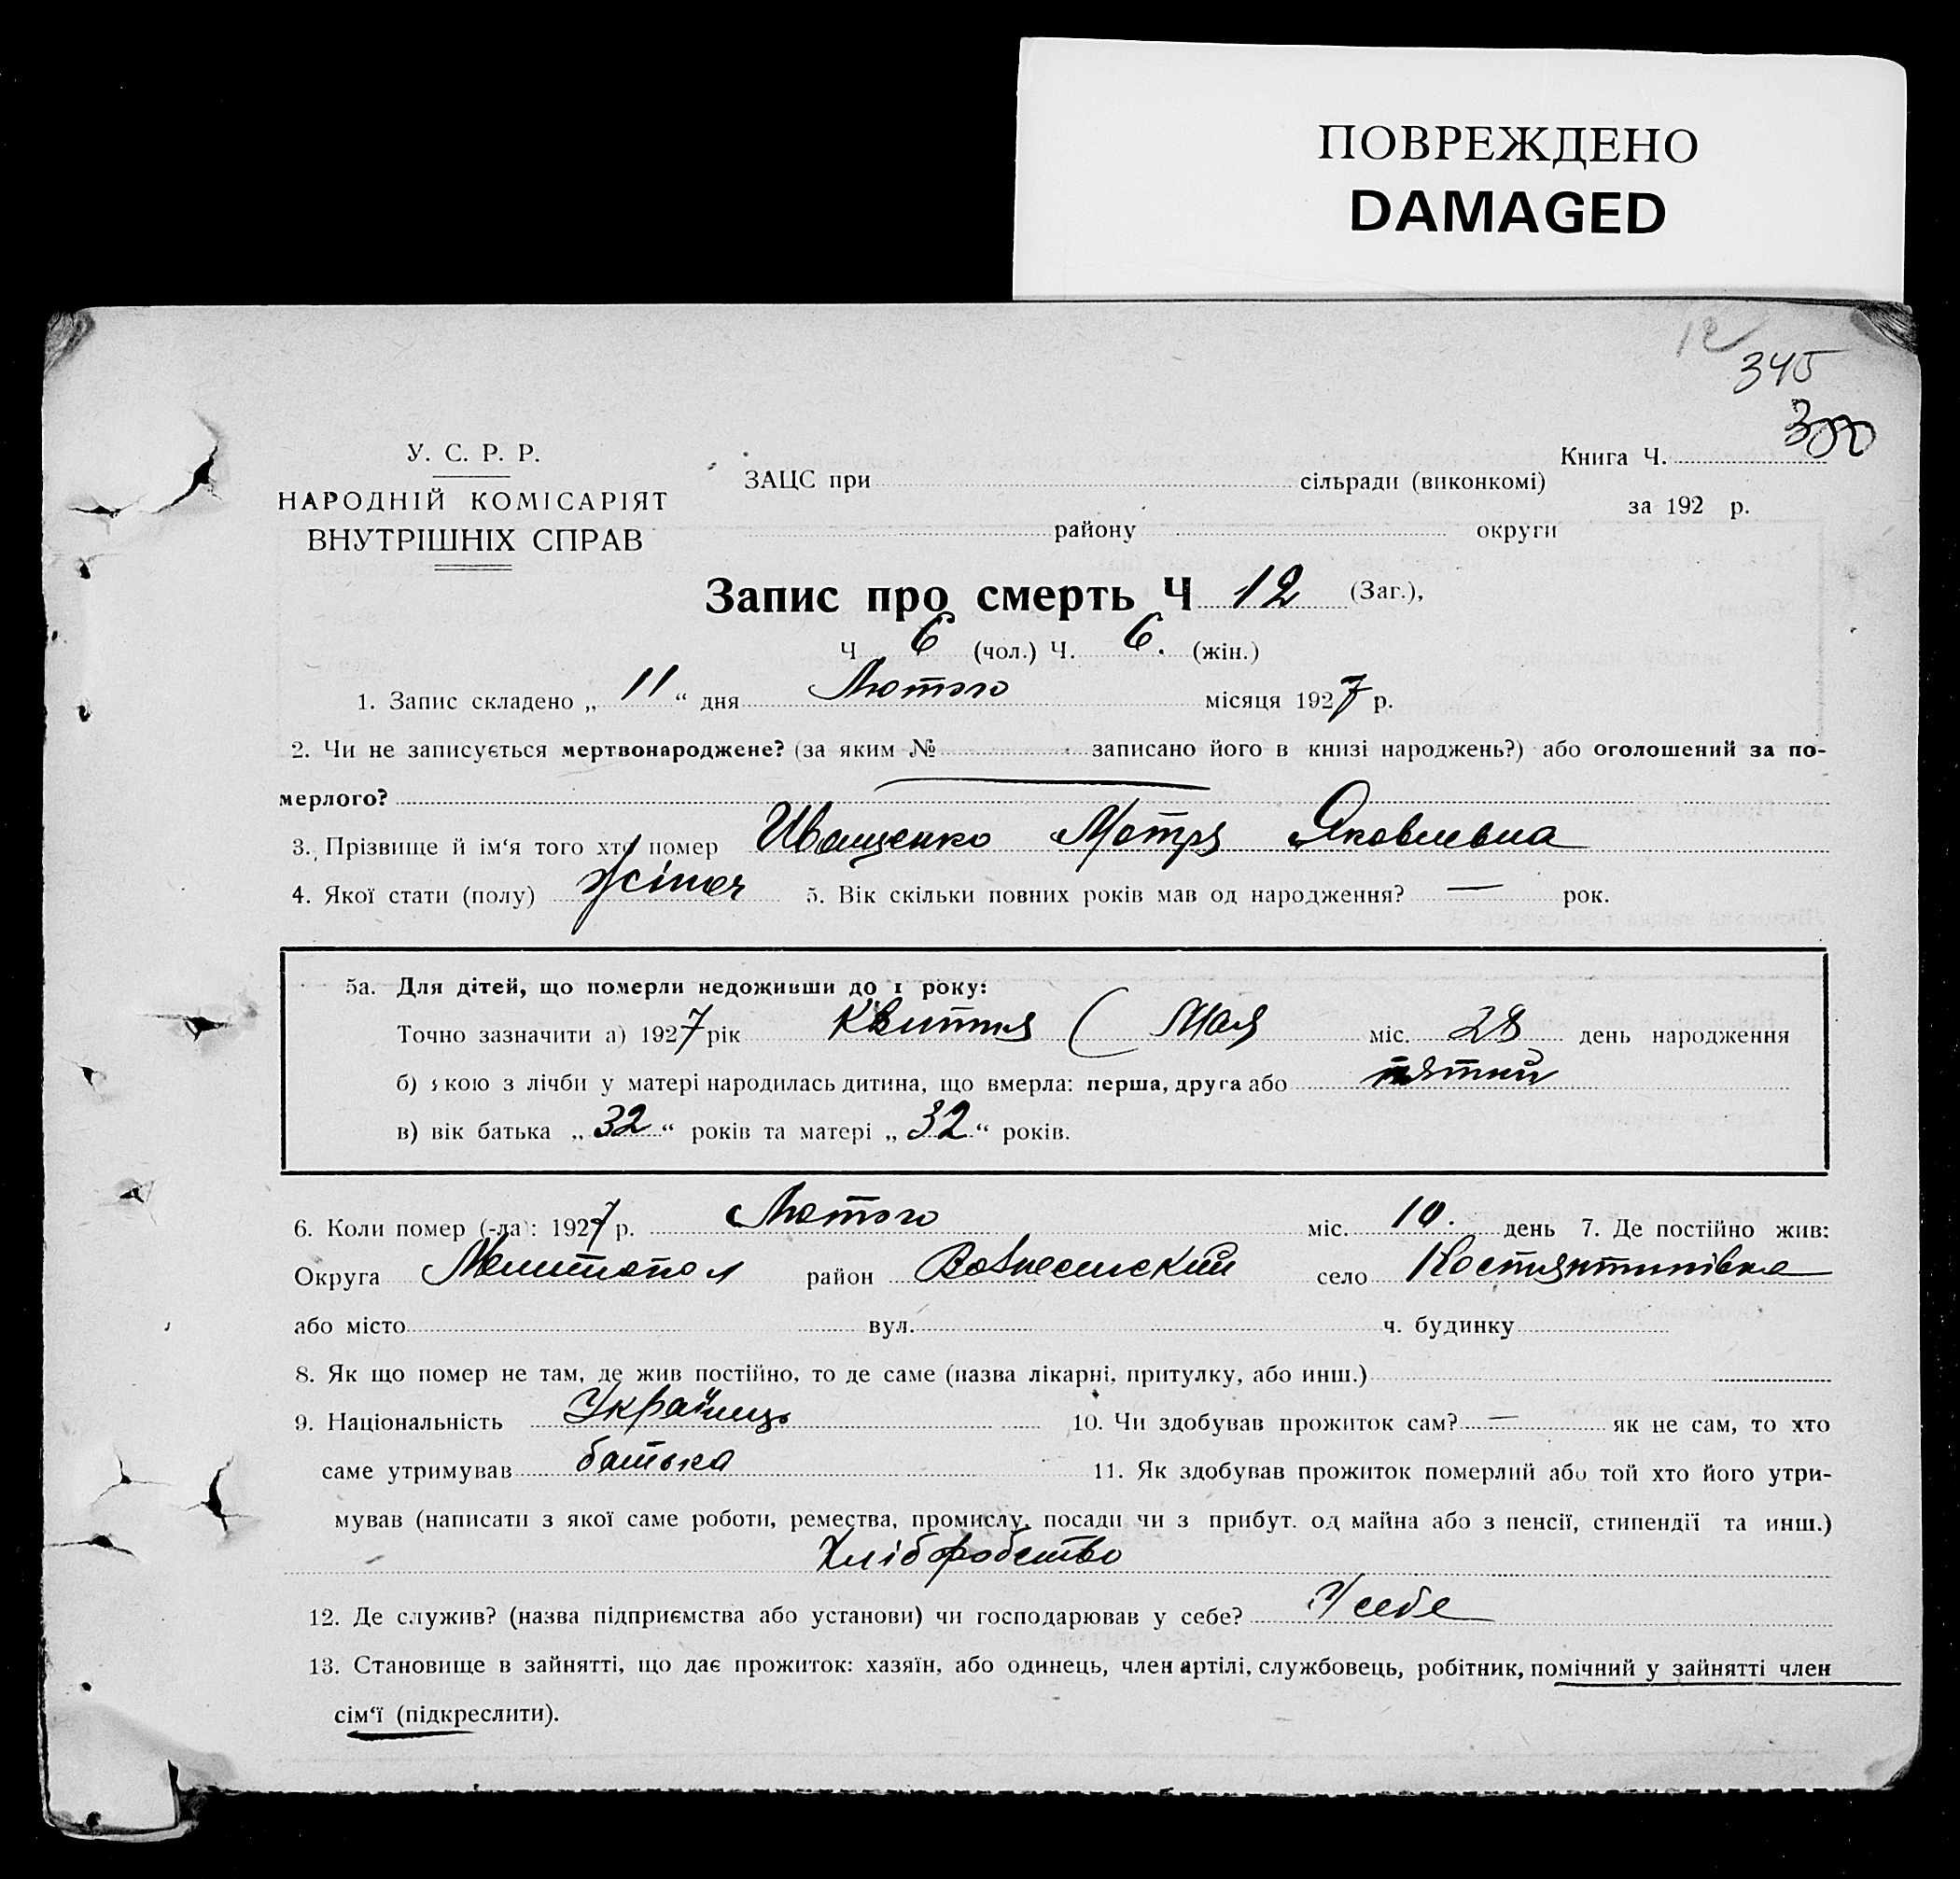 ПОВРЕЖДЕНО
DAMAGED
12
345
300
У. С. Р. Р.
НАРОДНІЙ КОМІСАРІЯТ
ВНУТРІШНІХ СПРАВ
ЗАЦС при сільради (виконкомі)
району округи
Книга Ч.
за 192 р.
Запис про смерть Ч 12 (Заг.),
Ч 6 (чол.) Ч. 6. (жін.)
1. Запис складено „ 11 “ дня Лютого місяця 1927 р.
2. Чи не записується мертвонароджене? (за яким № записано його в книзі народжень?) або оголошений за по-
мерлого?
3. Прізвище й ім‘я того хто помер Иващенко Мотря Яковлевна
4. Якої стати (полу) жіноч 5. Вік скільки повних років мав од народження? — рок.
5а. Для дітей, що померли недоживши до 1 року:
Точно зазначити а) 1927 рік Квитня ( Мая міс. 28 день народження
б) якою з лічби у матері народилась дитина, що вмерла: перша, друга або пятий
в) вік батька „ 32 “ років та матері „ 32 “ років.
6. Коли помер (-ла): 1927 р. Лютого міс. 10. день 7. Де постійно жив:
Округа Мелитопол район Вознесенский село Костянтинівка
або місто вул. ч. будинку
8. Як що помер не там, де жив постійно, то де саме (назва лікарні, притулку, або инш.)
9. Національність Українць 10. Чи здобував прожиток сам? — як не сам, то хто
саме утримував батька 11. Як здобував прожиток померлий або той хто його утри-
мував (написати з якої саме роботи, ремества, промислу, посади чи з прибут. од майна або з пенсії, стипендії та инш.)
Хліборобство
12. Де служив? (назва підприємства або установи) чи господарював у себе? У себе
13. Становище в зайнятті, що дає прожиток: хазяїн, або одинець, член артілі, службовець, робітник, помічний у зайнятті член
сім‘ї (підкреслити).